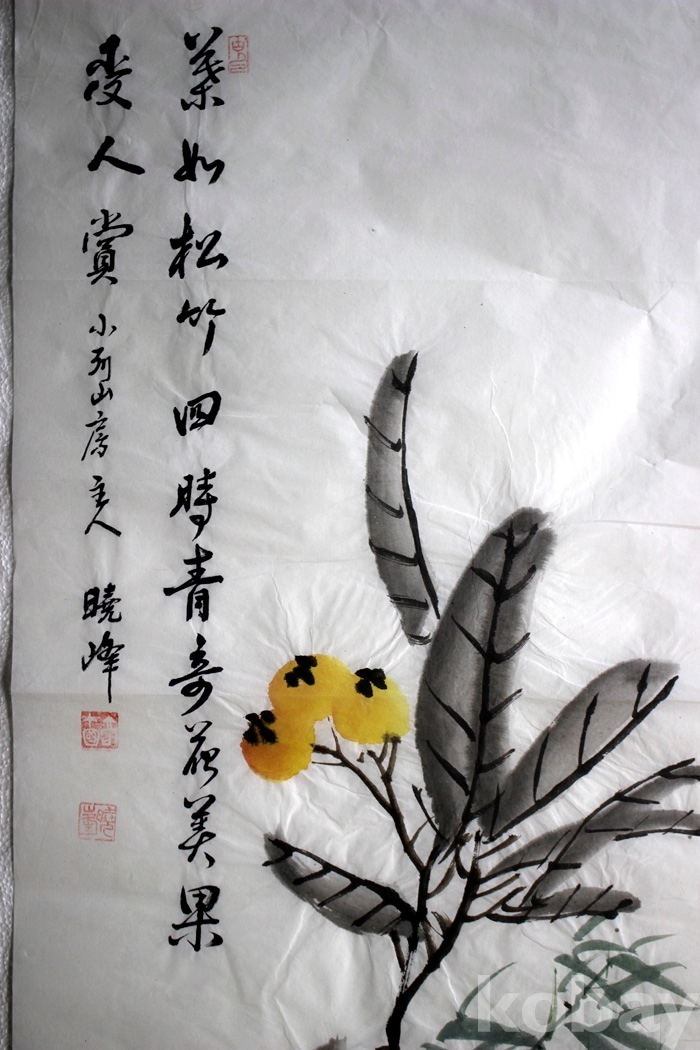 葉如松竹四時青奇花美果
受人賞 小山房主人 曉峰
kobay